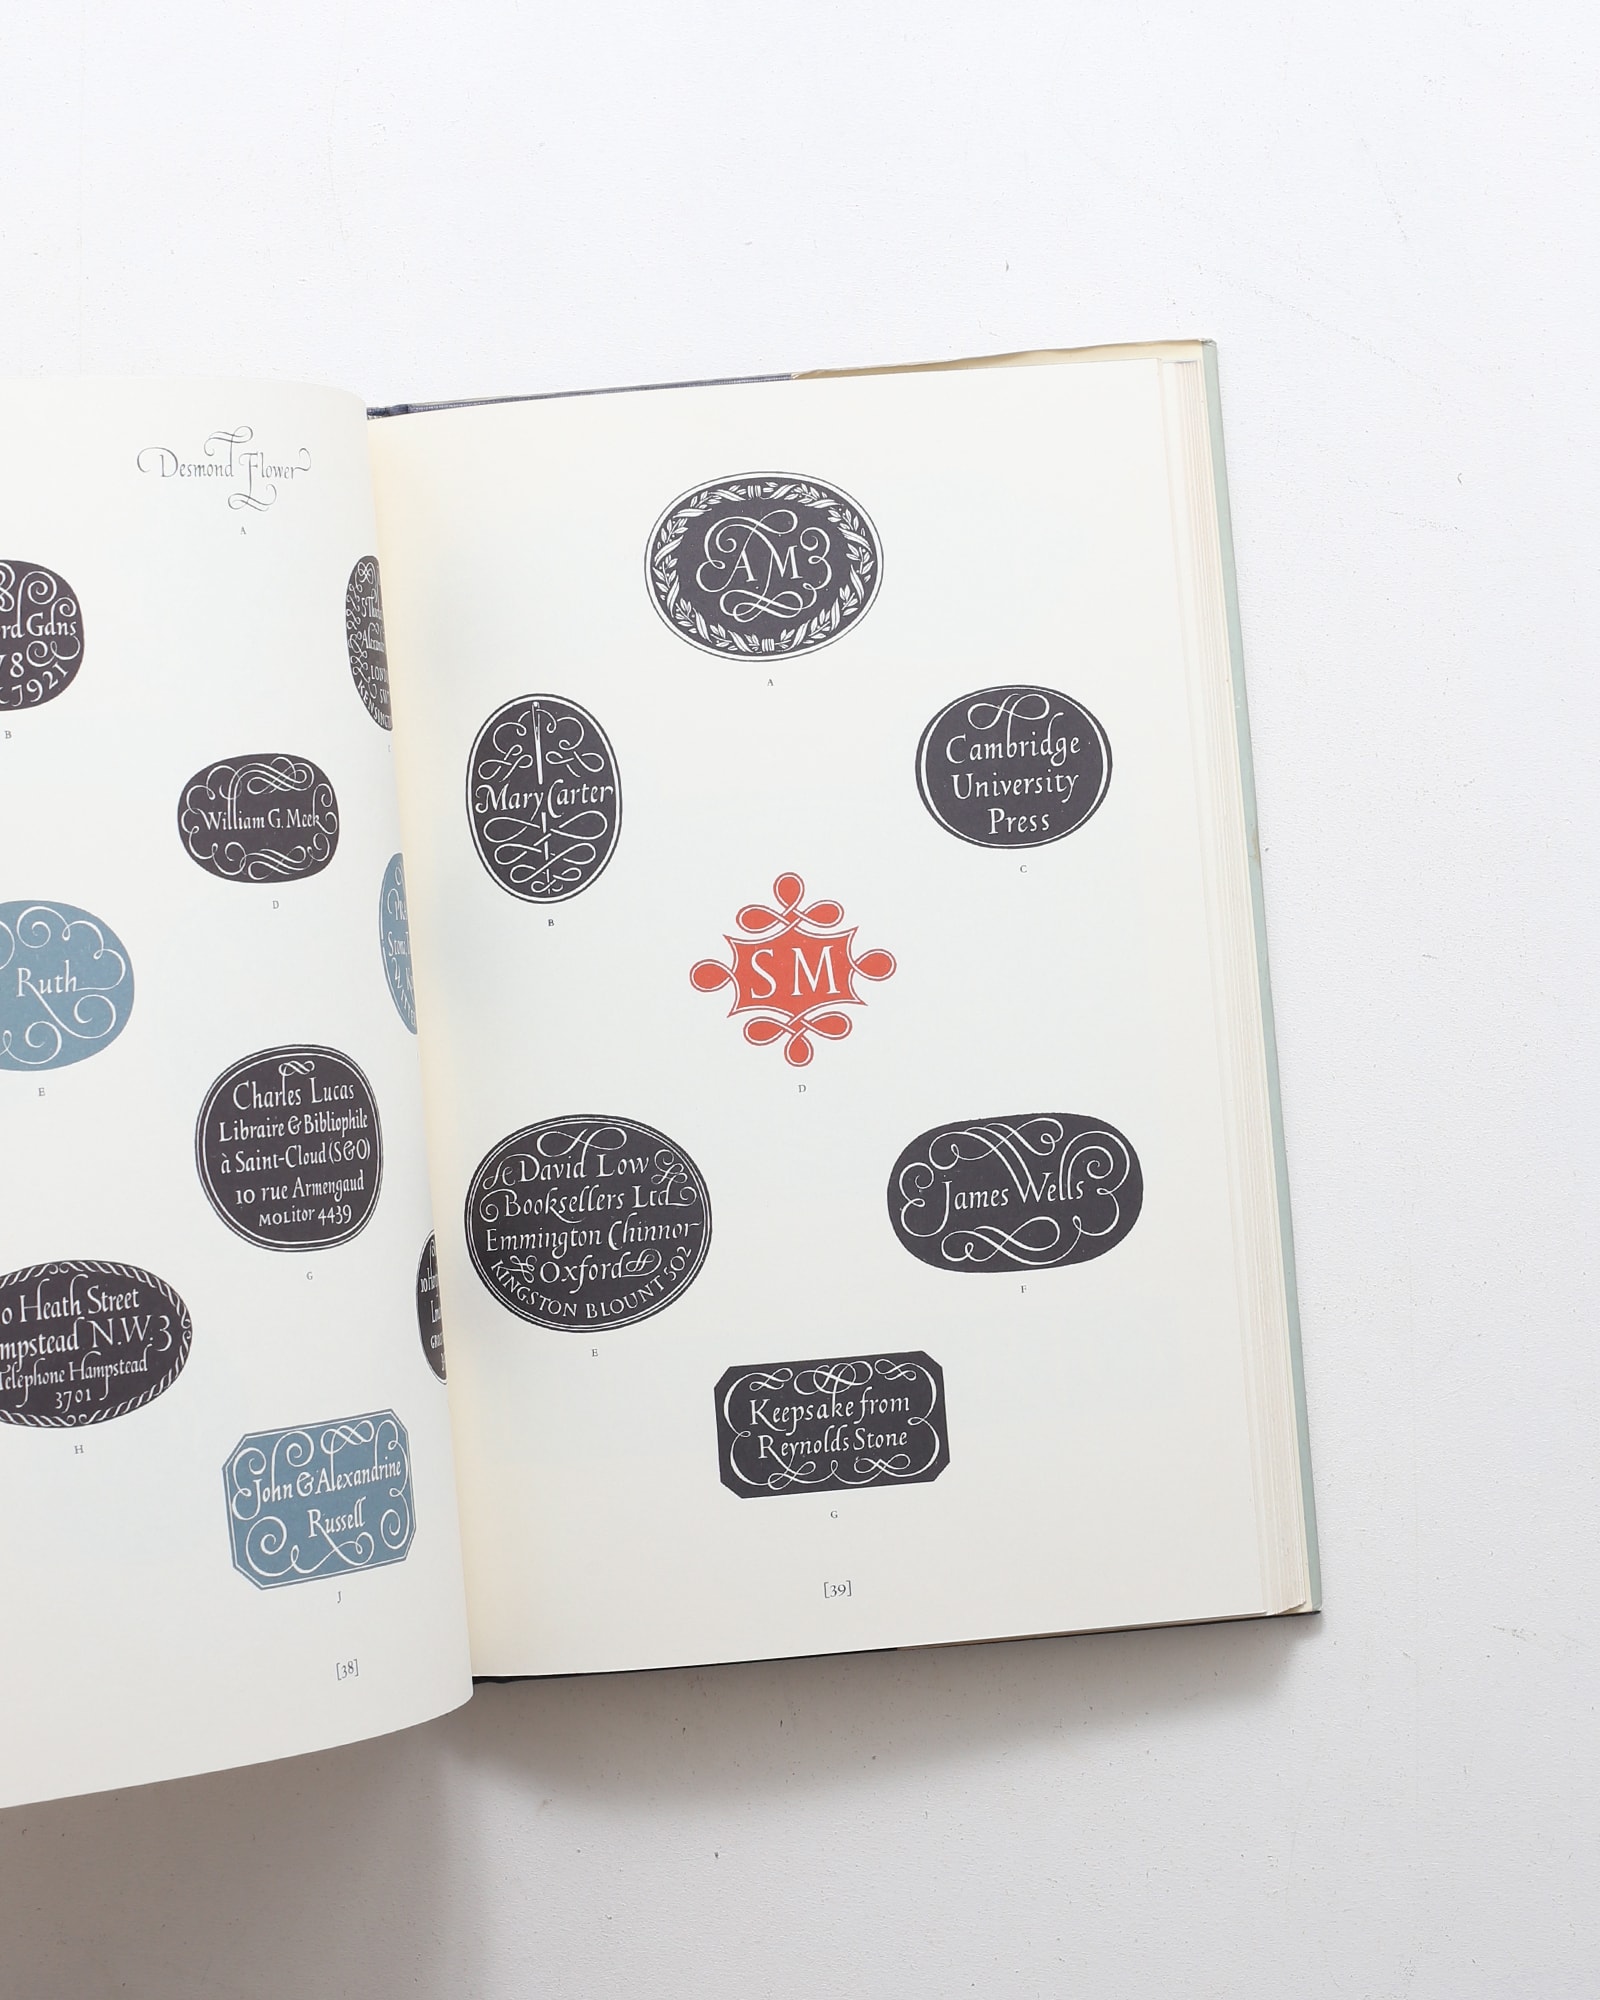 Desmond Flower
A
rd Gdns
78
7921
B
William G. Meek
D
Ruth
E
Charles Lucas
Libraire & Bibliophile
à Saint-Cloud (S&O)
10 rue Armengaud
MOLitor 4439
G
Heath Street
mpstead N.W.3
Telephone Hampstead
3701
H
John & Alexandrine
Russell
J
[38]
AM
A
Mary Carter
B
Cambridge
University
Press
C
SM
D
David Low
Booksellers Ltd
Emmington Chinnor
Oxford
KINGSTON BLOUNT 502
E
James Wells
F
Keepsake from
Reynolds Stone
G
[39]